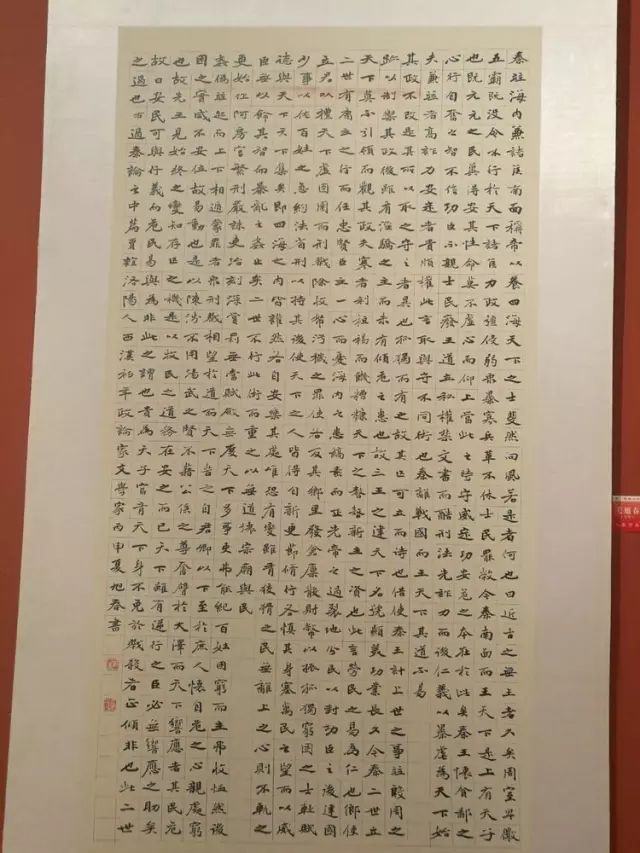 秦并海內兼諸侯南面稱帝以養四海天下之士斐然向風若是者何也曰近古之無王者久矣周室卑微
五霸既沒令不行於天下諸侯力政強侵弱眾暴寡兵革不休士民罷敝今秦南面而王天下是上有天子
也既元元之民冀得安其性命莫不虛心而仰上當此之時守威定功安危之本在於此矣秦王懷貪鄙之
心行自奮之智不信功臣不親士民廢王道立私權禁文書而酷刑法先詐力而後仁義以暴虐為天下始
夫兼並者高詐力安定者貴順權此言取與守不同術也秦離戰國而王天下其道不易
其政不改是其所以取之守之者異也孤獨而有之故其亡可立而待也借使秦王計上世之事並殷周之
跡以制禦其政後雖有淫驕之主而未有傾危之患也故三王之建天下名號顯美功業長久今秦二世立
天下莫不引領而觀其政夫寒者利裋褐而飢糟糠天下之嗸嗸新主之資也此言勞民之易為仁也鄉使
二世有庸主之行而任忠賢臣主一心而憂海內之患縞素而正先帝之過裂地分民以封功臣之後建國
立君以禮天下虛囹圄而刑戮除收帑污穢之罪使各反其鄉里發倉廩散財幣以振孤獨窮困之士輕賦
少事以佐百姓之急約法省刑以持其後使天下之人皆得自新更節修行各慎其身塞萬民之望而以威
德與天下天下集矣即四海之內皆讙然各自安樂其處唯恐有變雖有狡猾之民無離上之心則不軌之
臣無以飾其智而暴亂之奸止矣二世不行此術而重之以無道壞宗廟與民
更始作阿房宮繁刑嚴誅吏治刻深賞罰無當賦斂無度天下多事吏弗能紀百姓困窮而主弗收恤然後
奸偽並起而上下相遁蒙罪者眾刑戮相望於道而天下苦之自君卿以下至於庶人懷自危之心親處窮
困之實咸不安位故易動也是以陳涉不用湯武之賢不藉公侯之尊奮臂於大澤而天下響應者其民危
也故先王見始終之變知存亡之機是以牧民之道務在安之而已天下雖有逆行之臣必無響應之助矣
故曰安民可與行義而危民易與為非此之謂也貴為天子富有天下身不免於戮殺者正傾非也此二世
之過也右過秦論之中篇賈誼洛陽人西漢初年政論家文學家丙申夏旭春書